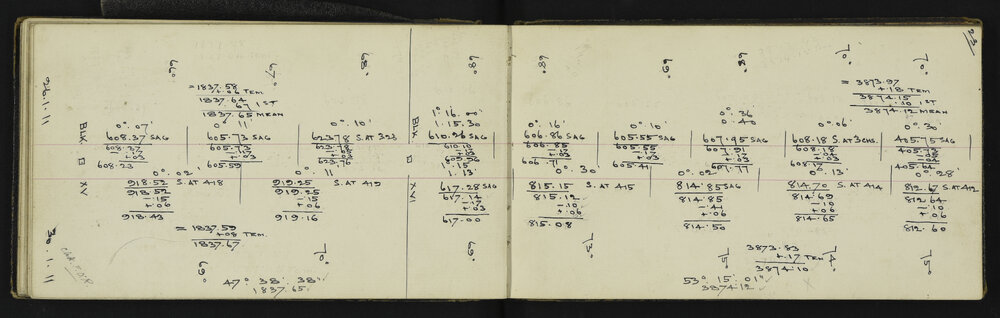 23
26.1.11
66°
67°
68°
68°
68°
69°
68°
70°
70°
= 1837.58
+.06 TEM
1837.64
.67 1ST
1837.65 MEAN
= 3873.97
+.18 TEM
3874.15
.10 1ST
3874.12 MEAN
BLK XV
0°. 07'
608.37 SAG
608.37
-.17
+.03
608.23
0° 11'
605.73 SAG
605.73
-.17
+.03
605.59
0°. 10'
623.78 S.AT 323
623.78
-.05
+.03
623.76
BLK XVI
1°. 16.00
1. 15.30
610.26 SAG
610.10
-.17
+.03
609.96
1. 15
1. 13
0°. 16'
606.86 SAG
606.85
-.17
+.03
606.71
0°. 10'
605.55 SAG
605.55
-.17
+.03
605.41
0°. 36
0. 40
607.95 SAG
607.91
-.17
+.03
607.77
0°. 06'
608.18 S.AT 3CHS.
608.18
-.04
+.03
608.17
0°. 30'
405.75 SAG
405.73
-.13
+.04
405.64
0°. 02'
918.52 S.AT 418
918.52
-.15
+.06
918.43
11
919.25 S.AT 419
919.25
-.15
+.06
919.16
617.28 SAG
617.14
-.17
+.03
617.00
0°. 30'
815.15 S.AT 415
815.12
-.10
+.06
815.08
0°. 02'
814.85 SAG
814.85
-.41
+.06
814.50
0°. 13'
814.70 S.AT 414
814.69
-.10
+.06
814.65
0°. 28'
812.67 S.AT 412
812.64
-.10
+.06
812.60
30.1.11
= 1837.59
+.08 TEM.
1837.67
69°
70°
69°
73°
75°
74°
75°
3873.83
+.17 TEM
3874.10
47° 38' 38"
1837.65
53° 15' 01"
3874.12